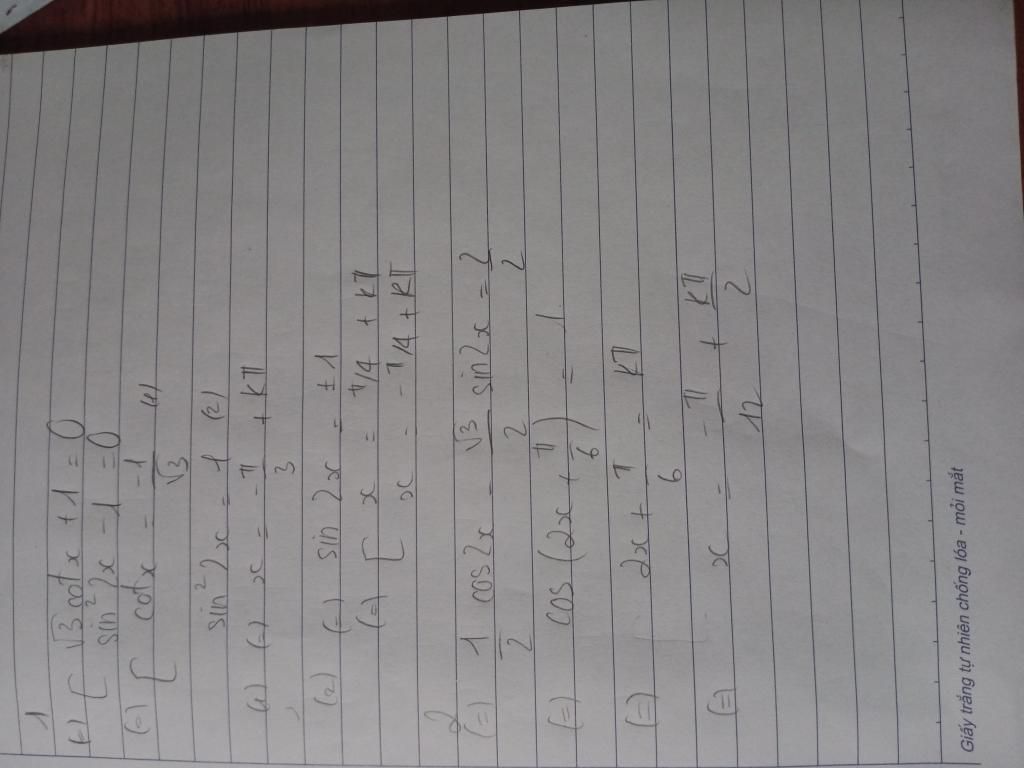 1
(=) [ √3 cotx + 1 = 0
sin²2x - 1 = 0
(=) [ cotx = -1/√3 (1)
sin²2x = 1 (2)
(1) (=) x = -π/3 + kπ
(2) (=) sin 2x = ±1
(=) [ x = π/4 + kπ
x = -π/4 + kπ
2
(=) 1/2 cos2x - √3/2 sin2x = 2/2
(=) cos(2x + π/6) = 1
(=) 2x + π/6 = kπ
(=) x = -π/12 + kπ/2
Giấy trắng tự nhiên chống lóa - mỏi mắt